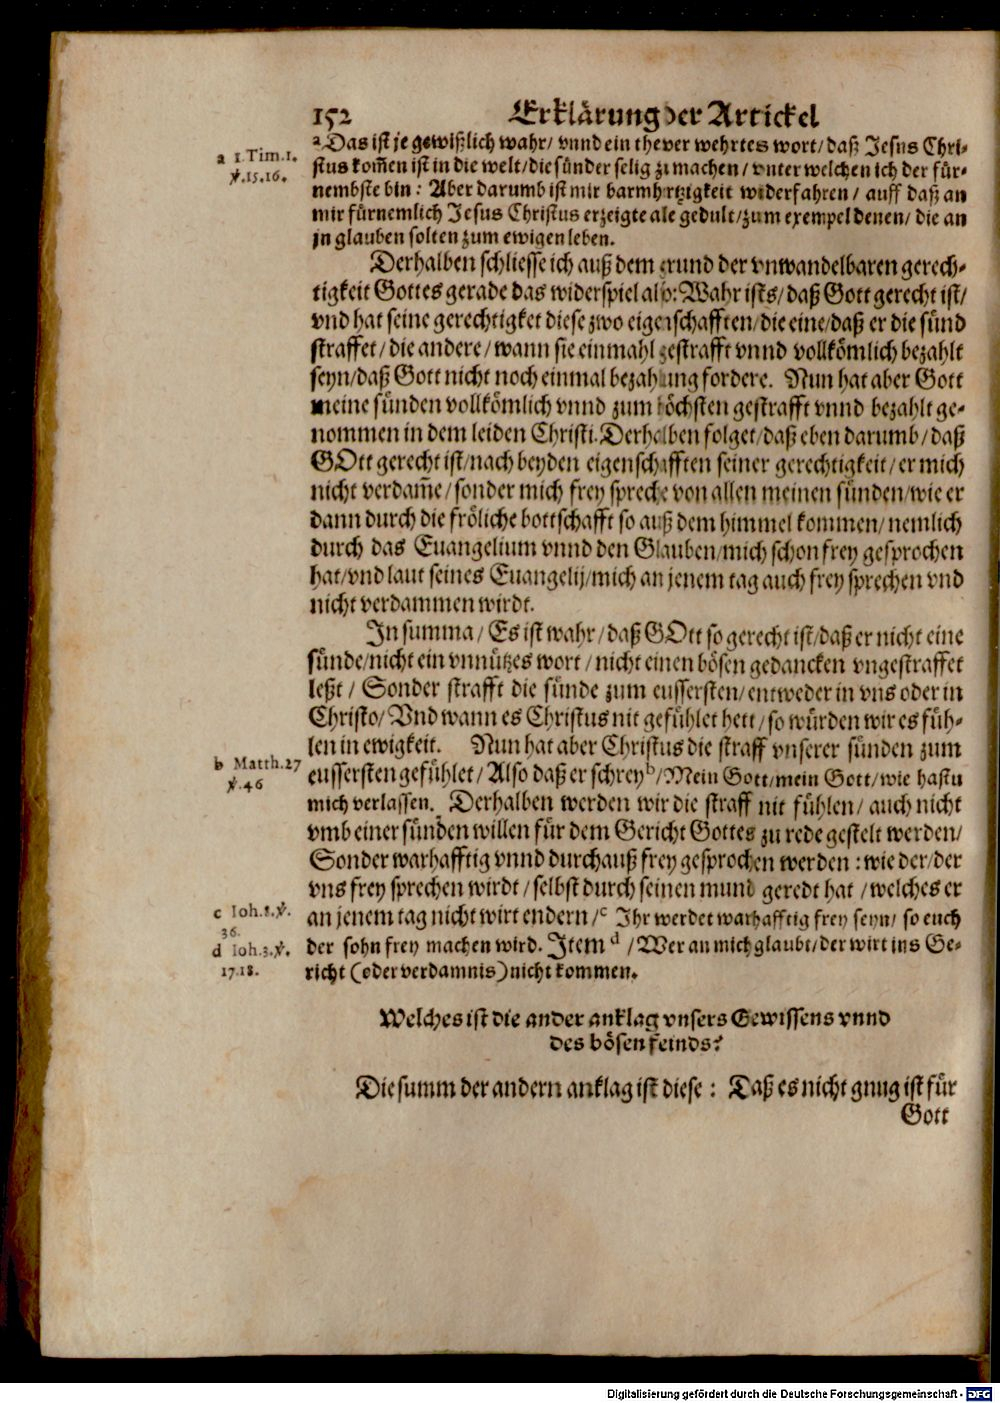 152 Erklärung der Artickel
a 1. Tim. 1.
℣. 15. 16.
ᵃ Das ist je gewißlich wahr/ vnnd ein thewer wehrtes wort/ daß Jesus Chri-
stus kom̃en ist in die welt/ die sünder selig zu machen/ vnter welchen ich der für-
nembste bin: Aber darumb ist mir barmhertzigkeit widerfahren/ auff daß an
mir fürnemlich Jesus Christus erzeigte alle gedult/ zum exempel denen/ die an
jn glauben solten zum ewigen leben.
Derhalben schliesse ich auß dem grund der vnwandelbaren gerech-
tigkeit Gottes gerade das widerspiel also: Wahr ists/ daß Gott gerecht ist/
vnd hat seine gerechtigket diese zwo eigenschafften/ die eine/ daß er die sünd
straffet/ die andere/ wann sie einmahl gestrafft vnnd vollkömlich bezahlt
seyn/ daß Gott nicht noch einmal bezahlung fordere. Nun hat aber Gott
meine sünden vollkömlich vnnd zum höchsten gestrafft vnnd bezahlt ge-
nommen in dem leiden Christi. Derhalben folget/ daß eben darumb/ daß
GOtt gerecht ist/ nach beyden eigenschafften seiner gerechtigkeit/ er mich
nicht verdam̃e/ sonder mich frey spreche von allen meinen sünden/ wie er
dann durch die fröliche bottschafft so auß dem himmel kommen/ nemlich
durch das Euangelium vnnd den Glauben/ mich schon frey gesprochen
hat/ vnd laut seines Euangelij/ mich an jenem tag auch frey sprechen vnd
nicht verdammen wirdt.
In summa/ Es ist wahr/ daß GOtt so gerecht ist/ daß er nicht eine
sünde/ nicht ein vnnützes wort/ nicht einen bösen gedancken vngestraffet
leßt/ Sonder strafft die sünde zum eussersten/ entweder in vns oder in
Christo/ Vnd wann es Christus nit gefühlet hett/ so würden wir es füh-
len in ewigkeit. Nun hat aber Christus die straff vnserer sünden zum
b Matth. 27
℣. 46
eussersten gefühlet/ Also daß er schrey ᵇ/ Mein Gott/ mein Gott/ wie hastu
mich verlassen. Derhalben werden wir die straff nit fühlen/ auch nicht
vmb einer sünden willen für dem Gericht Gottes zu rede gestelt werden/
Sonder warhafftig vnnd durchauß frey gesprochen werden: wie der/ der
vns frey sprechen wirdt/ selbst durch seinen mund geredt hat/ welches er
c Ioh. 8. ℣.
36.
an jenem tag nicht wirt endern/ ᶜ Ihr werdet warhafftig frey seyn/ so euch
d Ioh. 3. ℣.
17. 18.
der sohn frey machen wird. Item ᵈ/ Wer an mich glaubt/ der wirt ins Ge-
richt (oder verdamnis) nicht kommen.
Welches ist die ander anklag vnsers Gewissens vnnd
des bösen feinds?
Die summ der andern anklag ist diese: Daß es nicht gnug ist für
Gott
Digitalisierung gefördert durch die Deutsche Forschungsgemeinschaft - DFG